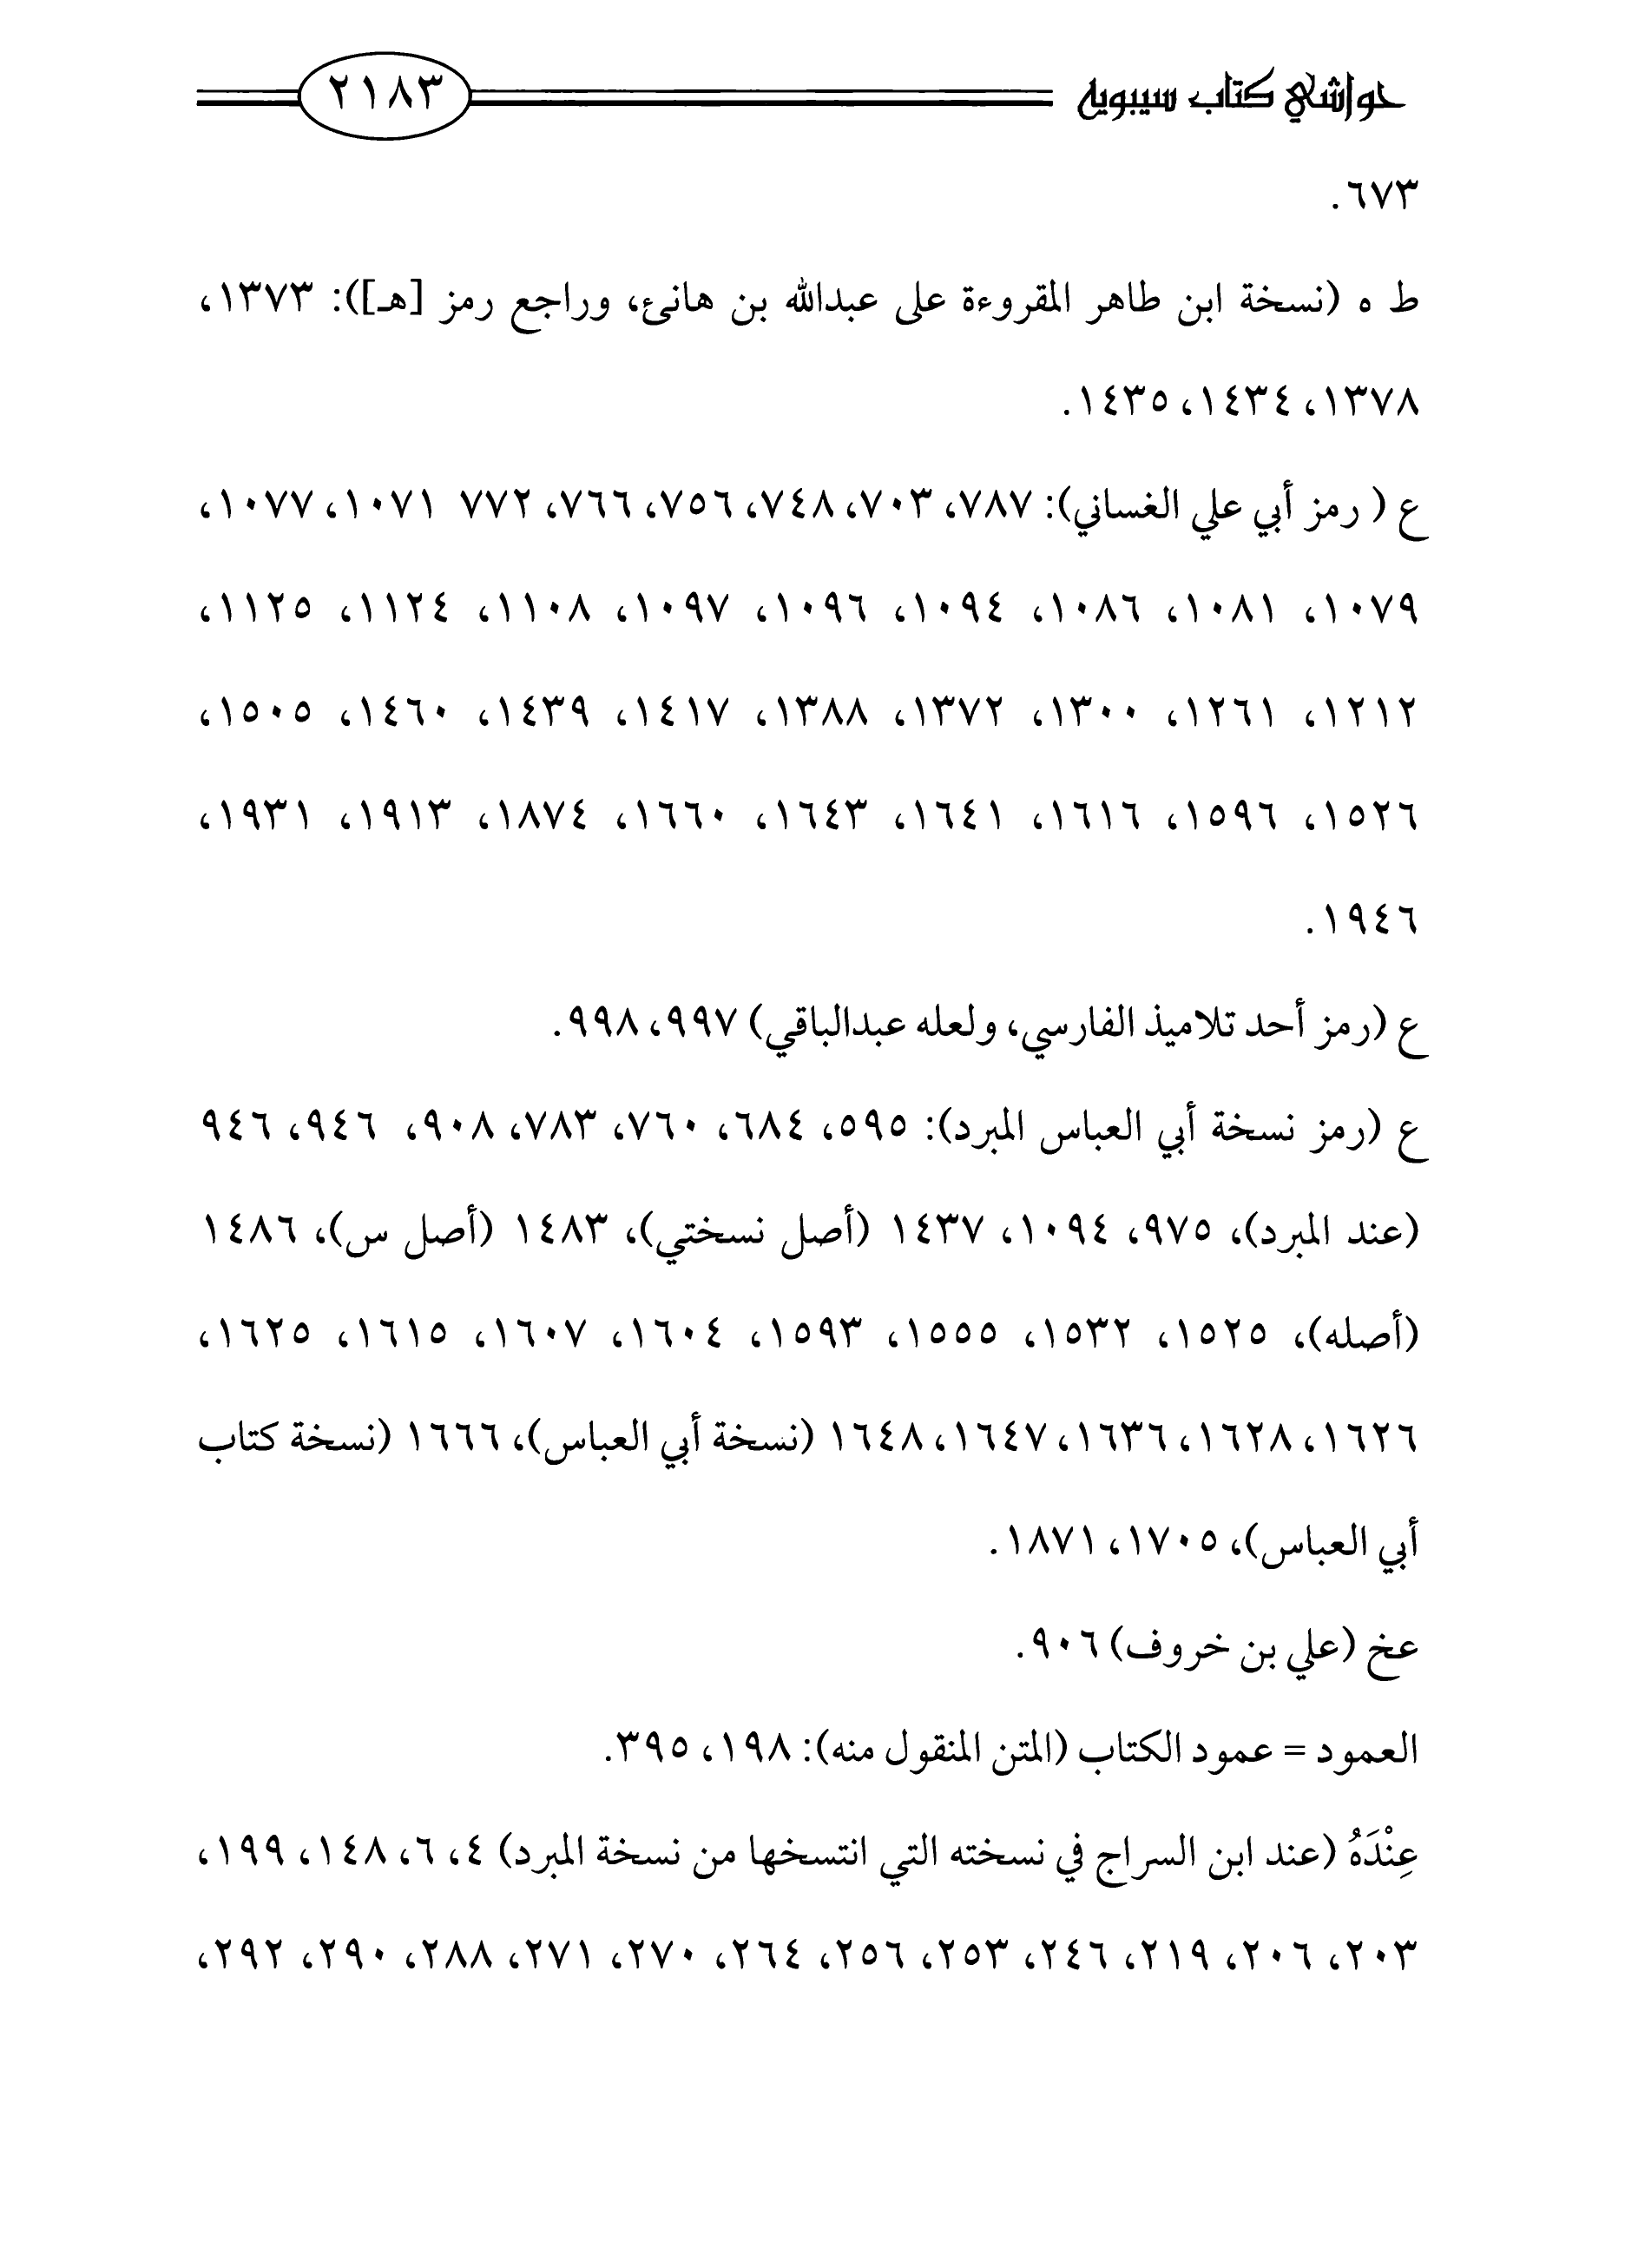 حواشي كتاب سيبويه ٢١٨٣
٦٧٣.
ط ه (نسخة ابن طاهر المقروءة على عبدالله بن هانئ، وراجع رمز [هـ]): ١٣٧٣،
١٣٧٨، ١٤٣٤، ١٤٣٥.
ع ( رمز أبي علي الغساني): ٧٨٧، ٧٠٣، ٧٤٨، ٧٥٦، ٧٦٦، ٧٧٢ ١٠٧١، ١٠٧٧،
١٠٧٩، ١٠٨١، ١٠٨٦، ١٠٩٤، ١٠٩٦، ١٠٩٧، ١١٠٨، ١١٢٤، ١١٢٥،
١٢١٢، ١٢٦١، ١٣٠٠، ١٣٧٢، ١٣٨٨، ١٤١٧، ١٤٣٩، ١٤٦٠، ١٥٠٥،
١٥٢٦، ١٥٩٦، ١٦١٦، ١٦٤١، ١٦٤٣، ١٦٦٠، ١٨٧٤، ١٩١٣، ١٩٣١،
١٩٤٦.
ع (رمز أحد تلاميذ الفارسي، ولعله عبدالباقي) ٩٩٧، ٩٩٨.
ع (رمز نسخة أبي العباس المبرد): ٥٩٥، ٦٨٤، ٧٦٠، ٧٨٣، ٩٠٨، ٩٤٦، ٩٤٦
(عند المبرد)، ٩٧٥، ١٠٩٤، ١٤٣٧ (أصل نسختي)، ١٤٨٣ (أصل س)، ١٤٨٦
(أصله)، ١٥٢٥، ١٥٣٢، ١٥٥٥، ١٥٩٣، ١٦٠٤، ١٦٠٧، ١٦١٥، ١٦٢٥،
١٦٢٦، ١٦٢٨، ١٦٣٦، ١٦٤٧، ١٦٤٨ (نسخة أبي العباس)، ١٦٦٦ (نسخة كتاب
أبي العباس)، ١٧٠٥، ١٨٧١.
عخ (علي بن خروف) ٩٠٦.
العمود = عمود الكتاب (المتن المنقول منه): ١٩٨، ٣٩٥.
عِنْدَهُ (عند ابن السراج في نسخته التي انتسخها من نسخة المبرد) ٤، ٦، ١٤٨، ١٩٩،
٢٠٣، ٢٠٦، ٢١٩، ٢٤٦، ٢٥٣، ٢٥٦، ٢٦٤، ٢٧٠، ٢٧١، ٢٨٨، ٢٩٠، ٢٩٢،